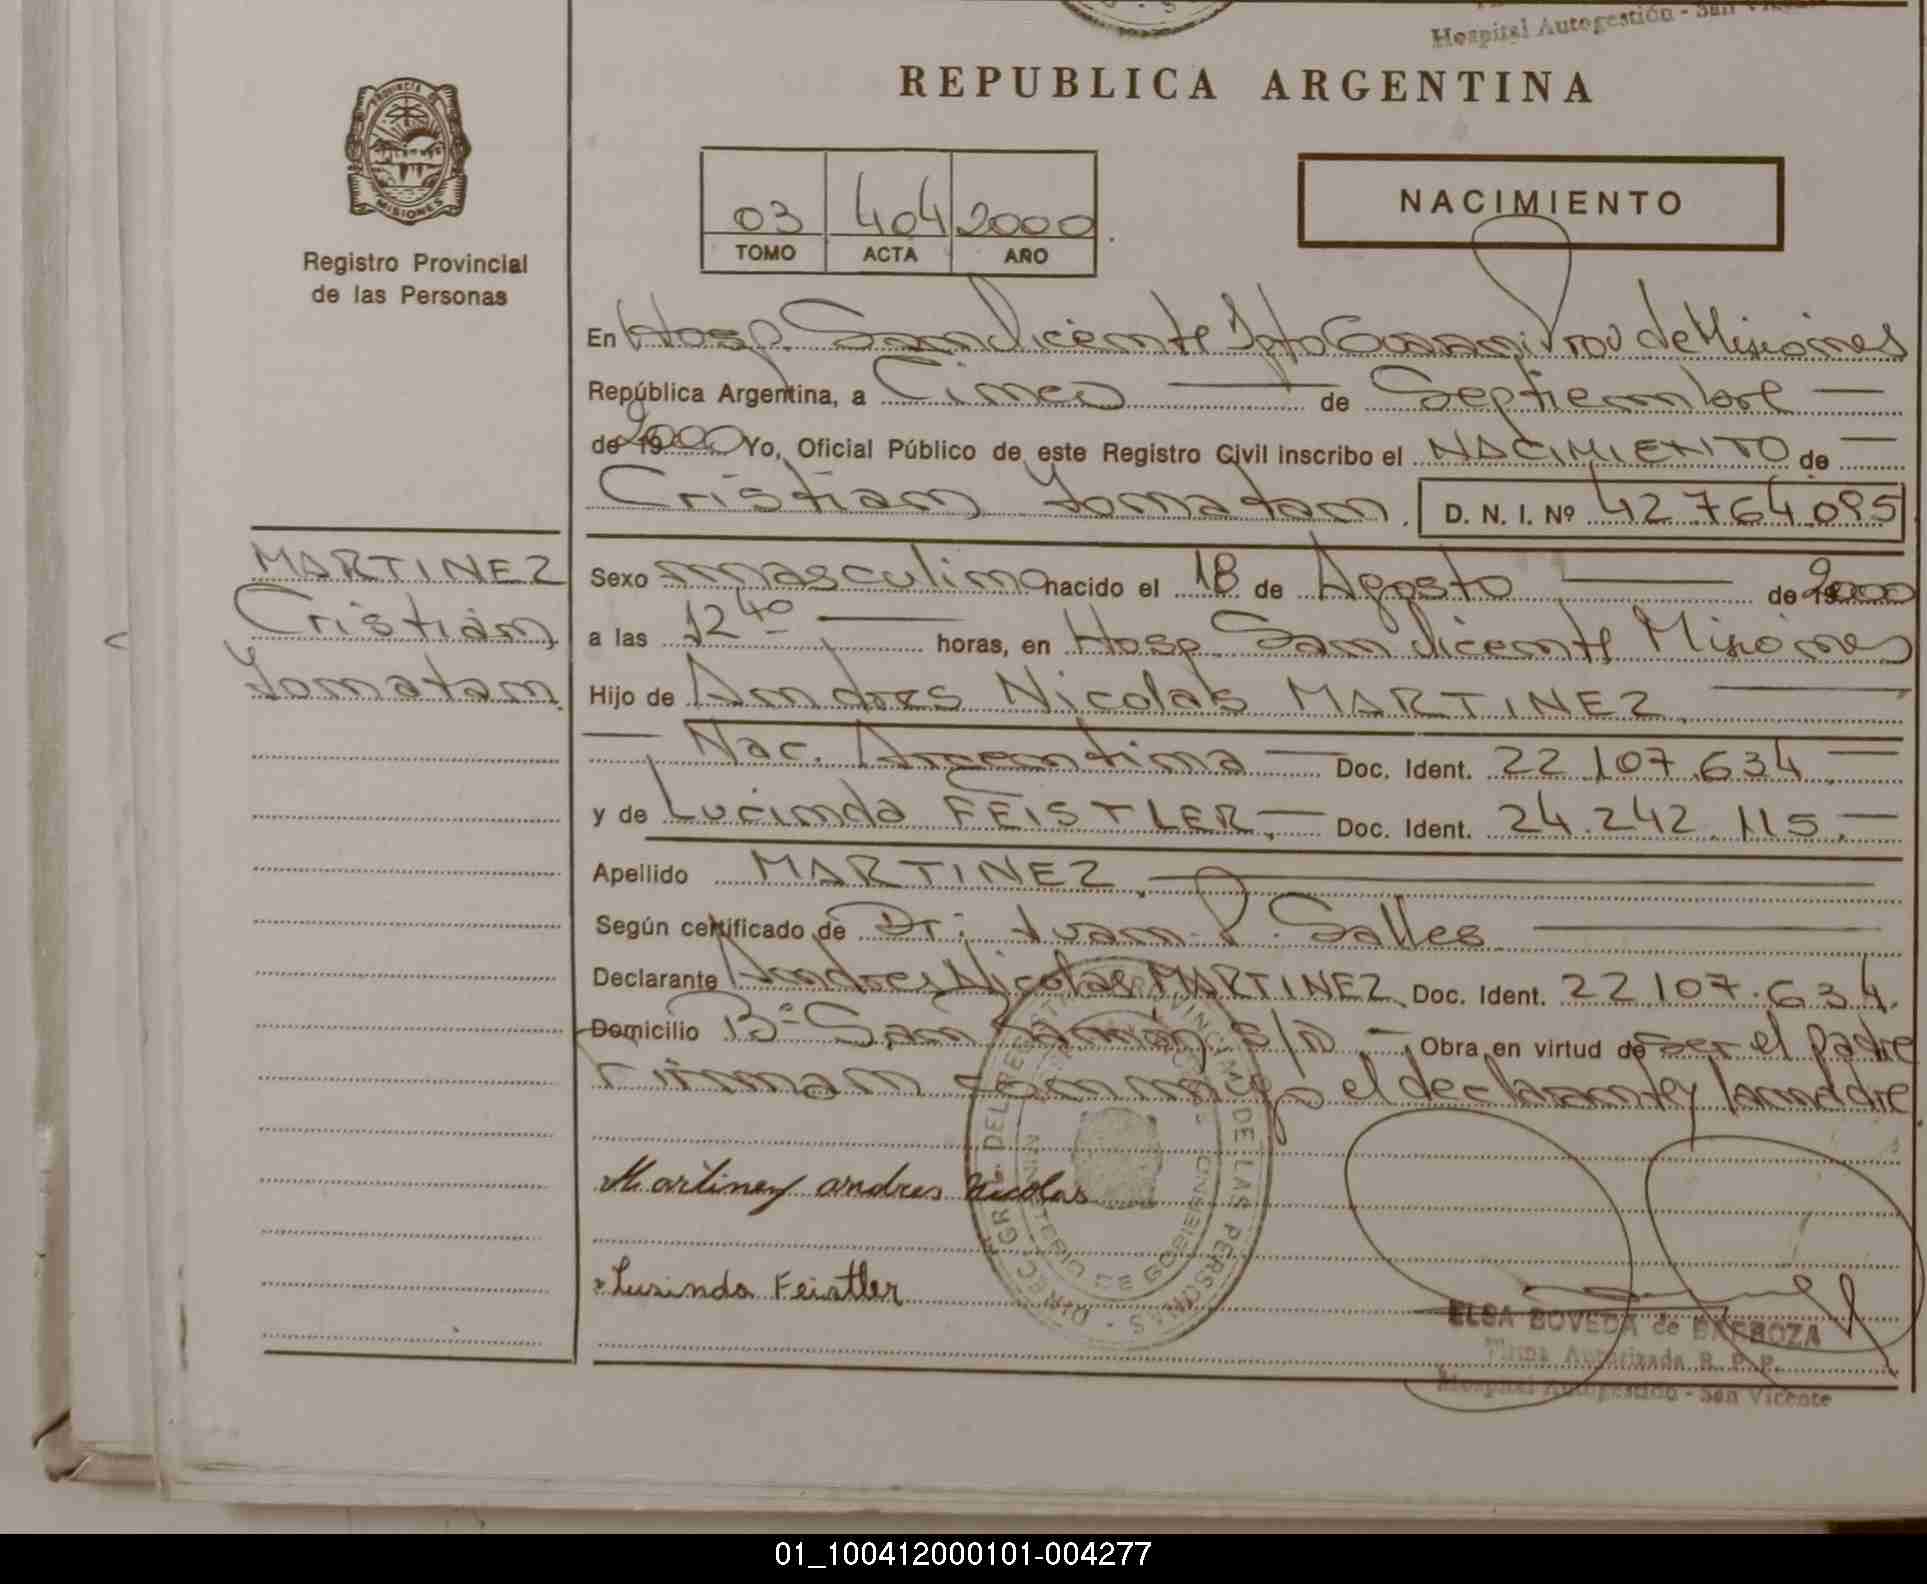 Hospital Autogestión - San Vicente
REPUBLICA ARGENTINA
PROVINCIA DE
MISIONES
Registro Provincial
de las Personas
03 404 2000
TOMO ACTA AÑO
NACIMIENTO
En Hosp. San Vicente Dpto Guarani Prov de Misiones
República Argentina, a Cinco de Septiembre
de 2000 Yo, Oficial Público de este Registro Civil inscribo el NACIMIENTO de
Cristian Jonatan. D. N. I. Nº 42.764.095
MARTINEZ
Cristian
Jonatan.
Sexo masculino nacido el 18 de Agosto de 2000
a las 12 40 horas, en Hosp. San Vicente Misiones
Hijo de Andres Nicolas MARTINEZ.
Nac. Argentina Doc. Ident. 22.107.634.
y de Lucinda FEISTLER. Doc. Ident. 24.242.115.
Apellido MARTINEZ.
Según certificado de Dr: Juan P. Salles
Declarante Andres Nicolas MARTINEZ. Doc. Ident. 22.107.634.
Domicilio Bº San Ramón S/N Obra en virtud de ser el padre
Firman conmigo el declarante y la madre
Martinez andres Nicolas
Lusinda Feistler
DIREC. GRAL. DEL REGISTRO PROVINCIAL DE LAS PERSONAS
MINISTERIO DE GOBIERNO
ELSA BOVEDA de BARBOZA
Firma Autorizada R. P. P.
Hospital Autogestión - San Vicente
01_100412000101-004277